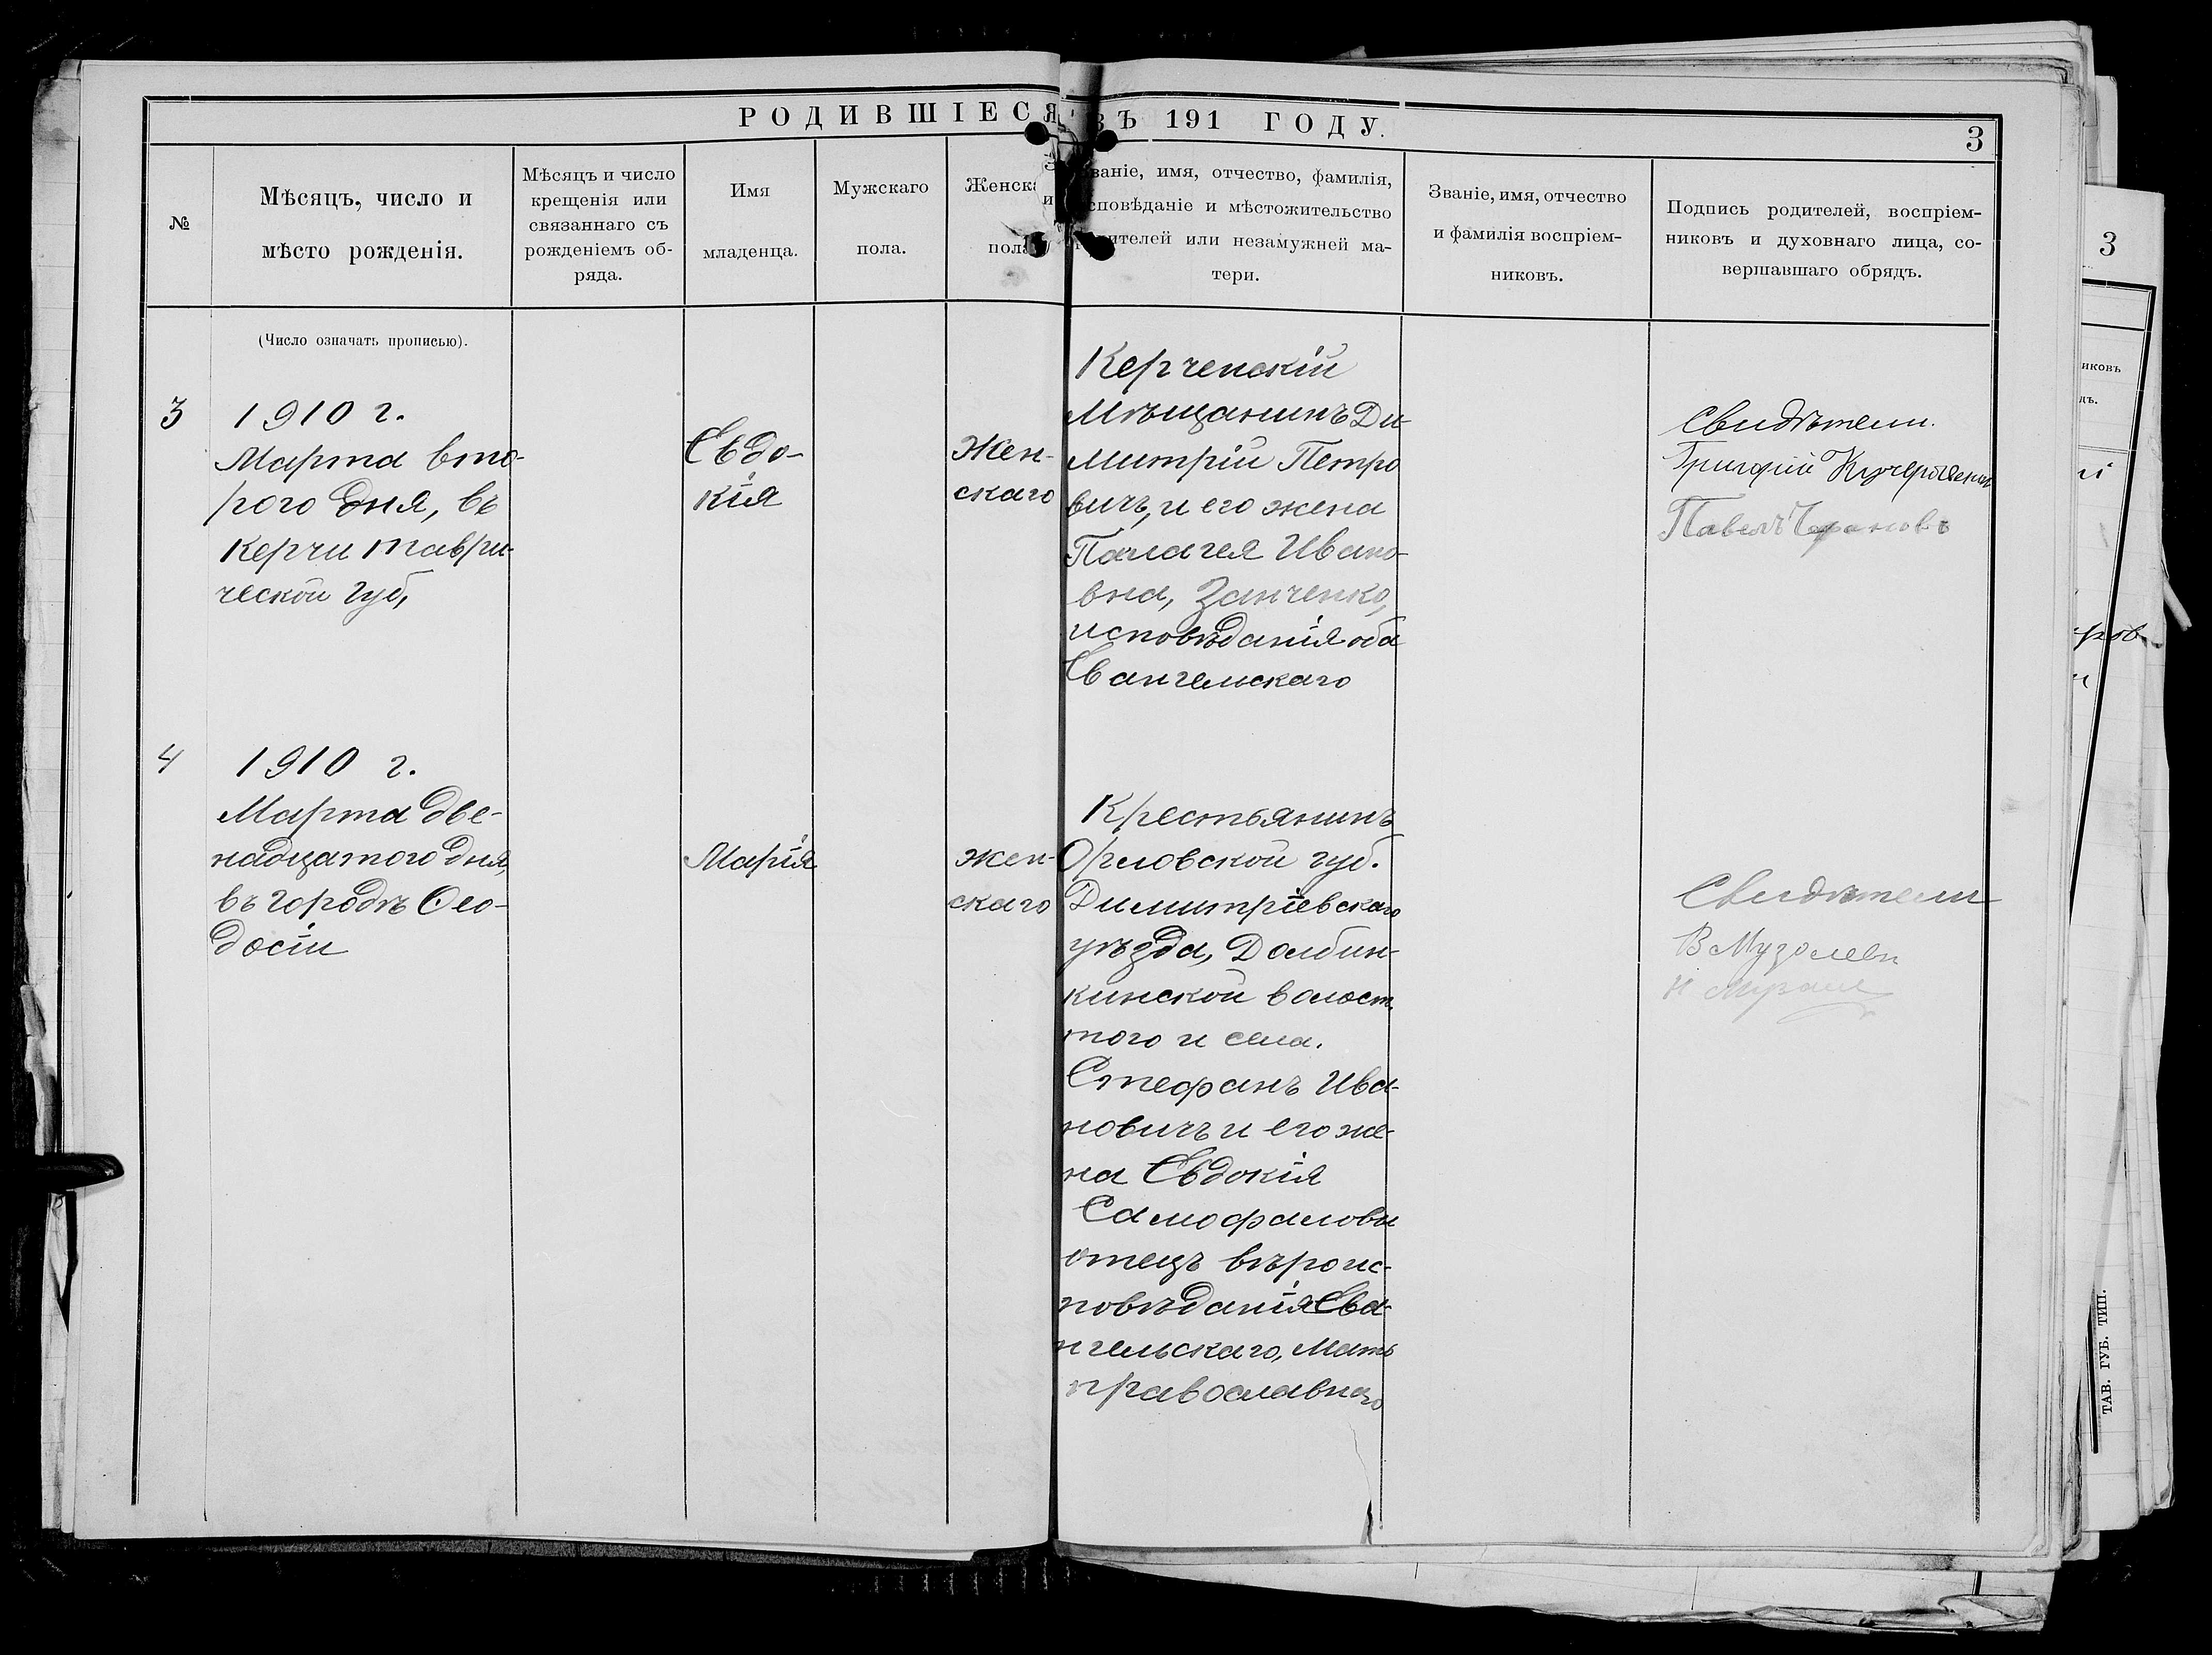 РОДИВШІЕСЯ ВЪ 191 ГОДУ.
3
№
Мѣсяцъ, число и
мѣсто рожденія.
Мѣсяцъ и число
крещенія или
связаннаго съ
рожденіемъ об-
ряда.
Имя
младенца.
Мужскаго
пола.
Женска
пола
ваніе, имя, отчество, фамилія,
сповѣданіе и мѣстожительство
дителей или незамужней ма-
тери.
Званіе, имя, отчество
и фамилія воспріем-
никовъ.
Подпись родителей, воспріем-
никовъ и духовнаго лица, со-
вершавшаго обрядъ.
(Число означать прописью).
3
1910 г.
Марта вто-
рого дня, въ
Керчи Таври-
ческой губ,
Евдо-
кія
Жен-
скаго
Керченскій
Мѣщанинъ Ди-
митрій Петро
вичъ, и его жена
Палагея Ивано-
вна, Занченко,
исповѣданія оба
Евангельскаго
Свидѣтели.
Григорій
Павелъ
4
1910 г.
Марта две-
надцатого дня,
въ городѣ Ѳео-
досіи
Марія
Жен-
скаго
Крестьянинъ
Орловской губ.
Димитріевскаго
уѣзда, Долбин-
кинской волост.
того и села.
Стефанъ Ива-
новичъ и его же-
на Евдокія
Самофаловы
отецъ вѣроис-
повѣданія Ева-
нгельскаго, Мать
православнаго
Свидѣтели
В
Н
3
иковъ
дъ.
ТАВ. ГУБ. ТИП.